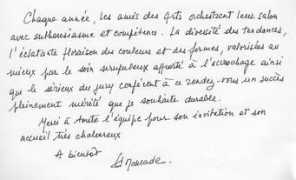 Chaque année, les amis des Arts orchestrent leur salon
avec enthousiasme et compétence. La diversité des tendances,
l'éclatante floraison des couleurs et des formes, valorisées au
mieux par le soin scrupuleux apporté à l'accrochage ainsi
que le sérieux du jury confèrent à ce rendez-vous un succès
pleinement mérité que je souhaite durable.
Merci à toute l'équipe pour son invitation et son
accueil très chaleureux
A bientôt